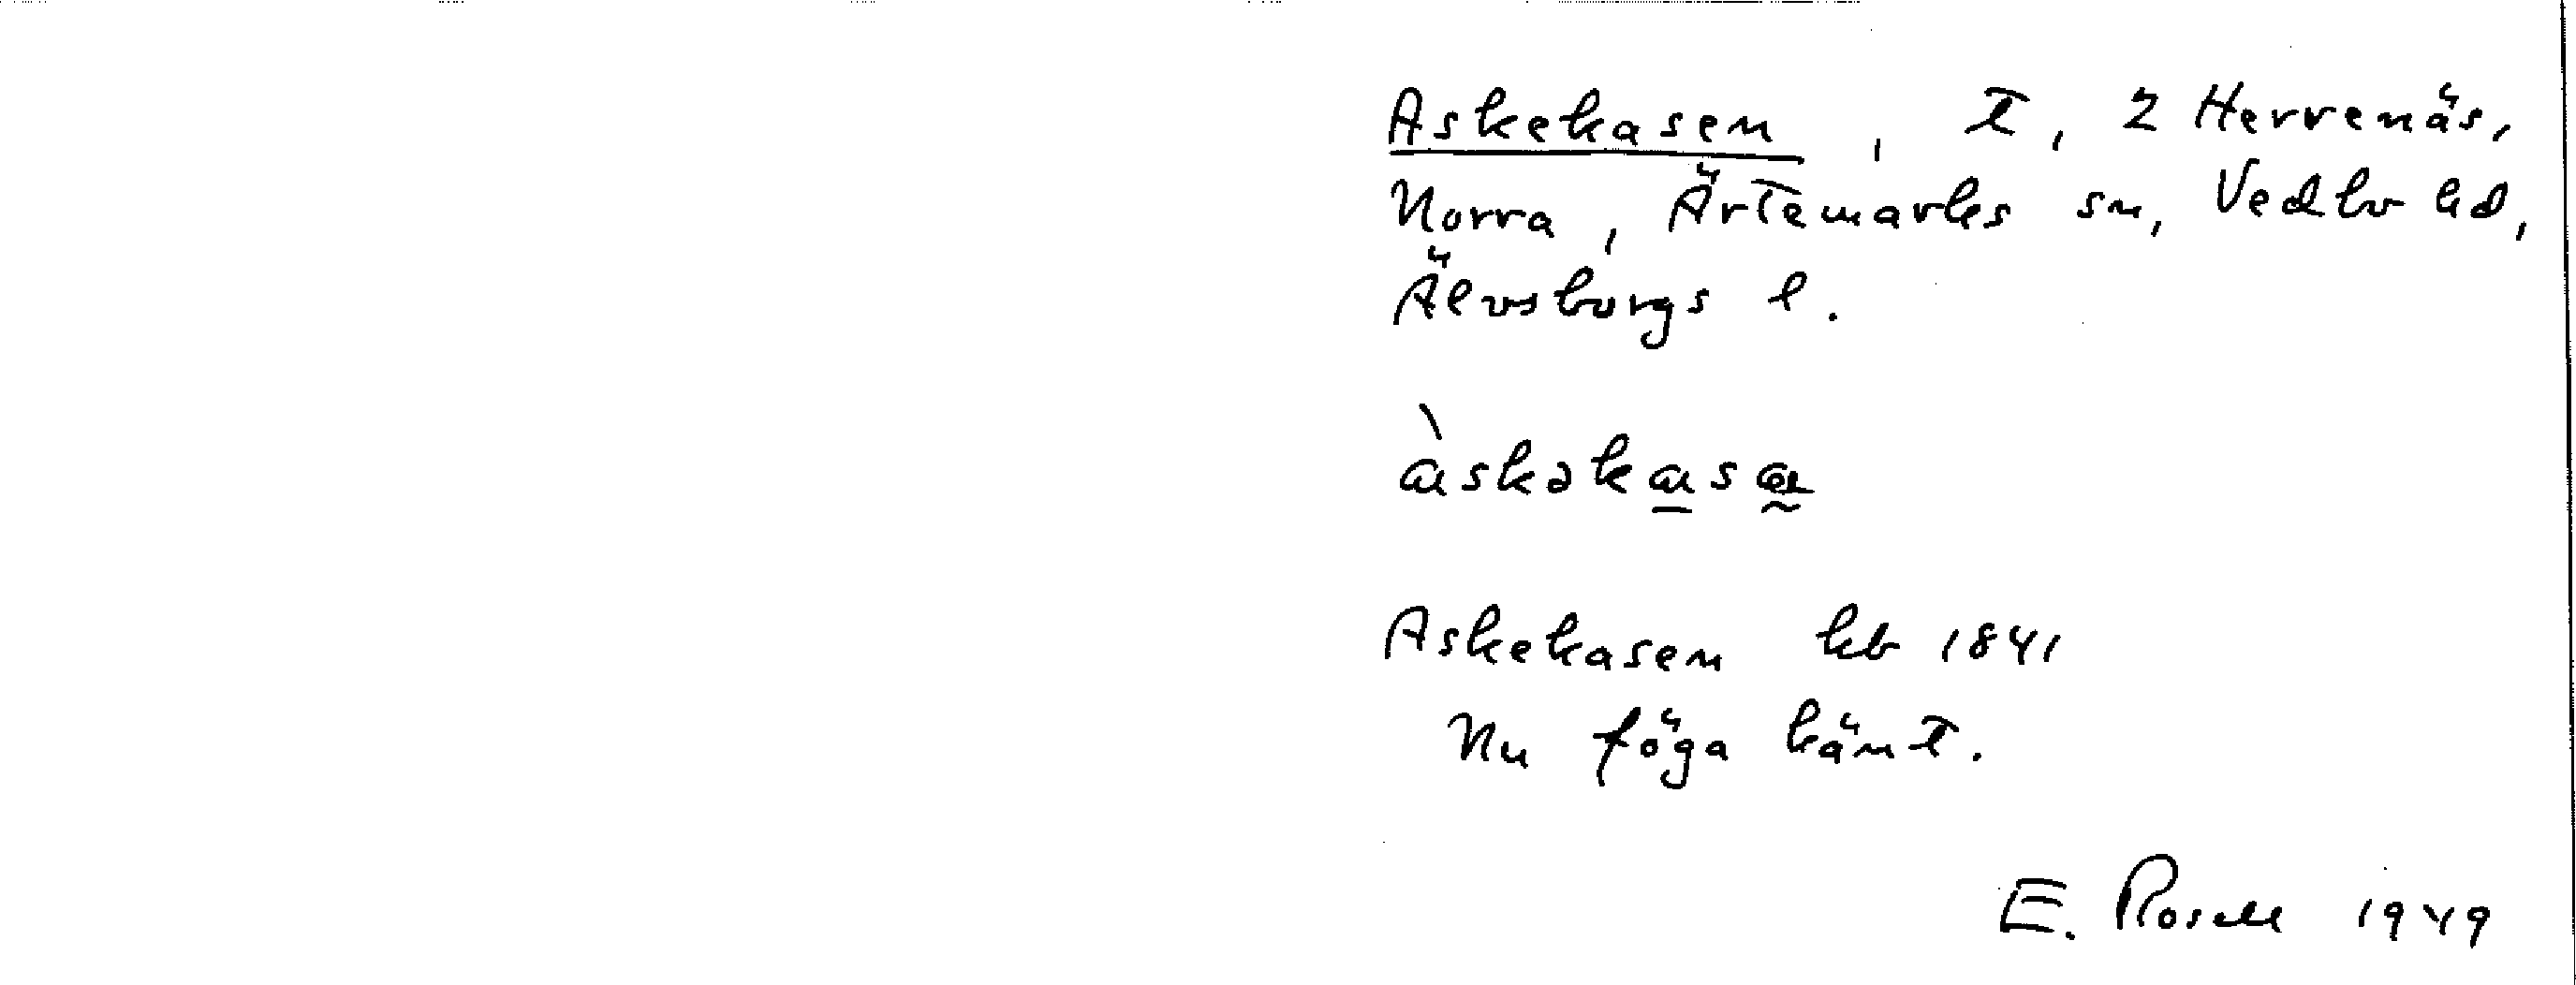 Askekasen, t, 2 Herrenäs,
Norra, Ärtemarks sn, Vedbo hd,
Älvsborgs l.
Askekasen kb 1841
Nu föga känt.
E. Rosell 1949